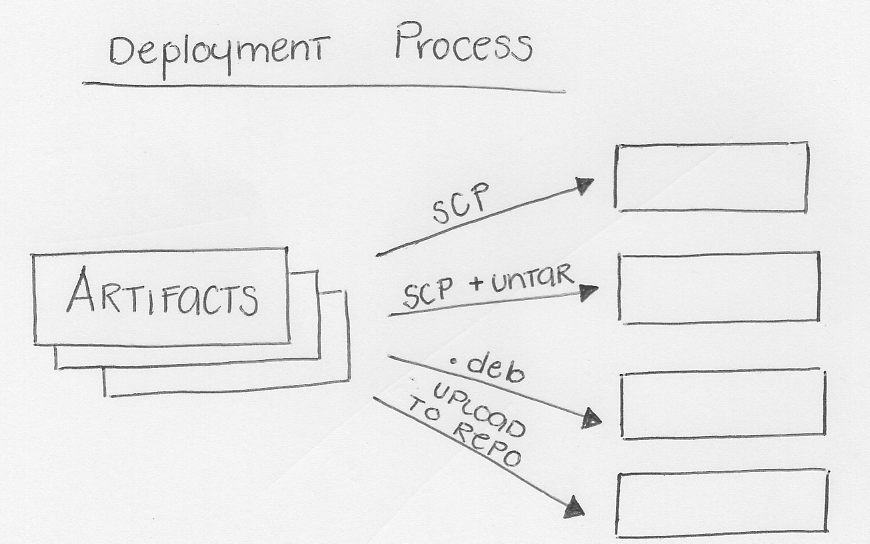 Deployment Process
SCP
ARTIFACTS
SCP + UNTAR
.deb
UPLOAD
TO REPO